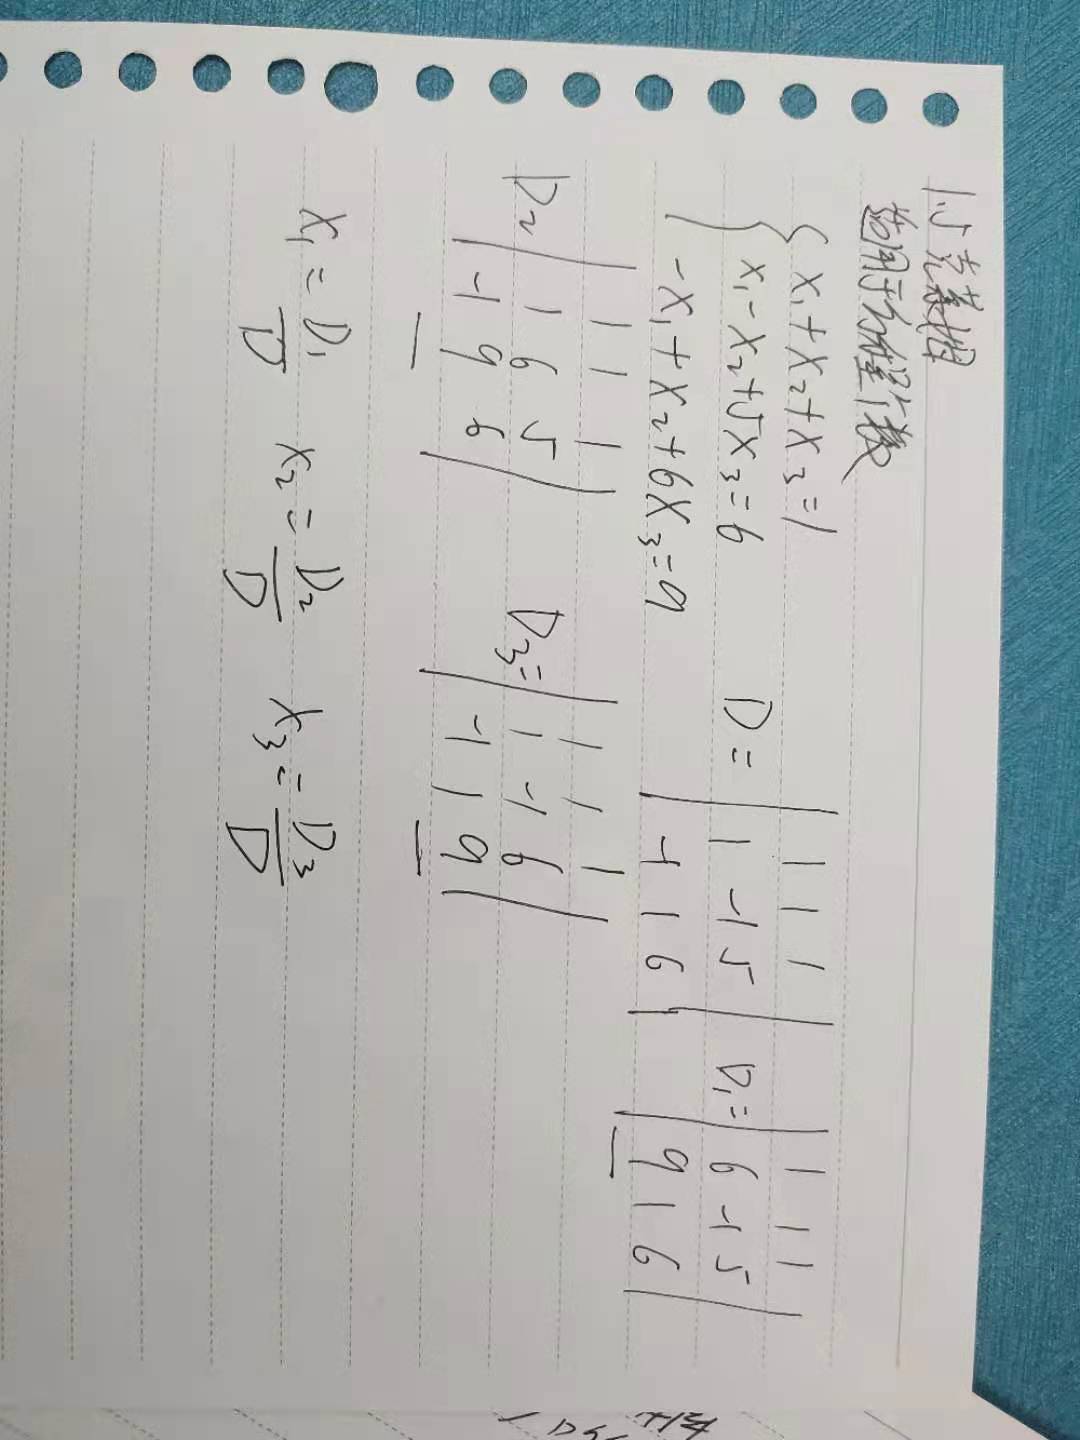 1.5 克莱姆
适用于方程个数
x₁+x₂+x₃=1
x₁-x₂+5x₃=6
-x₁+x₂+6x₃=9
D=
| 1 1 1 |
| 1 -1 5 |
| -1 1 6 |
D₁=
| 1 1 1 |
| 6 -1 5 |
| 9 1 6 |
D₂
| 1 1 1 |
| 1 6 5 |
| -1 9 6 |
D₃=
| 1 1 1 |
| 1 -1 6 |
| -1 1 9 |
x₁=D₁/D x₂=D₂/D x₃=D₃/D